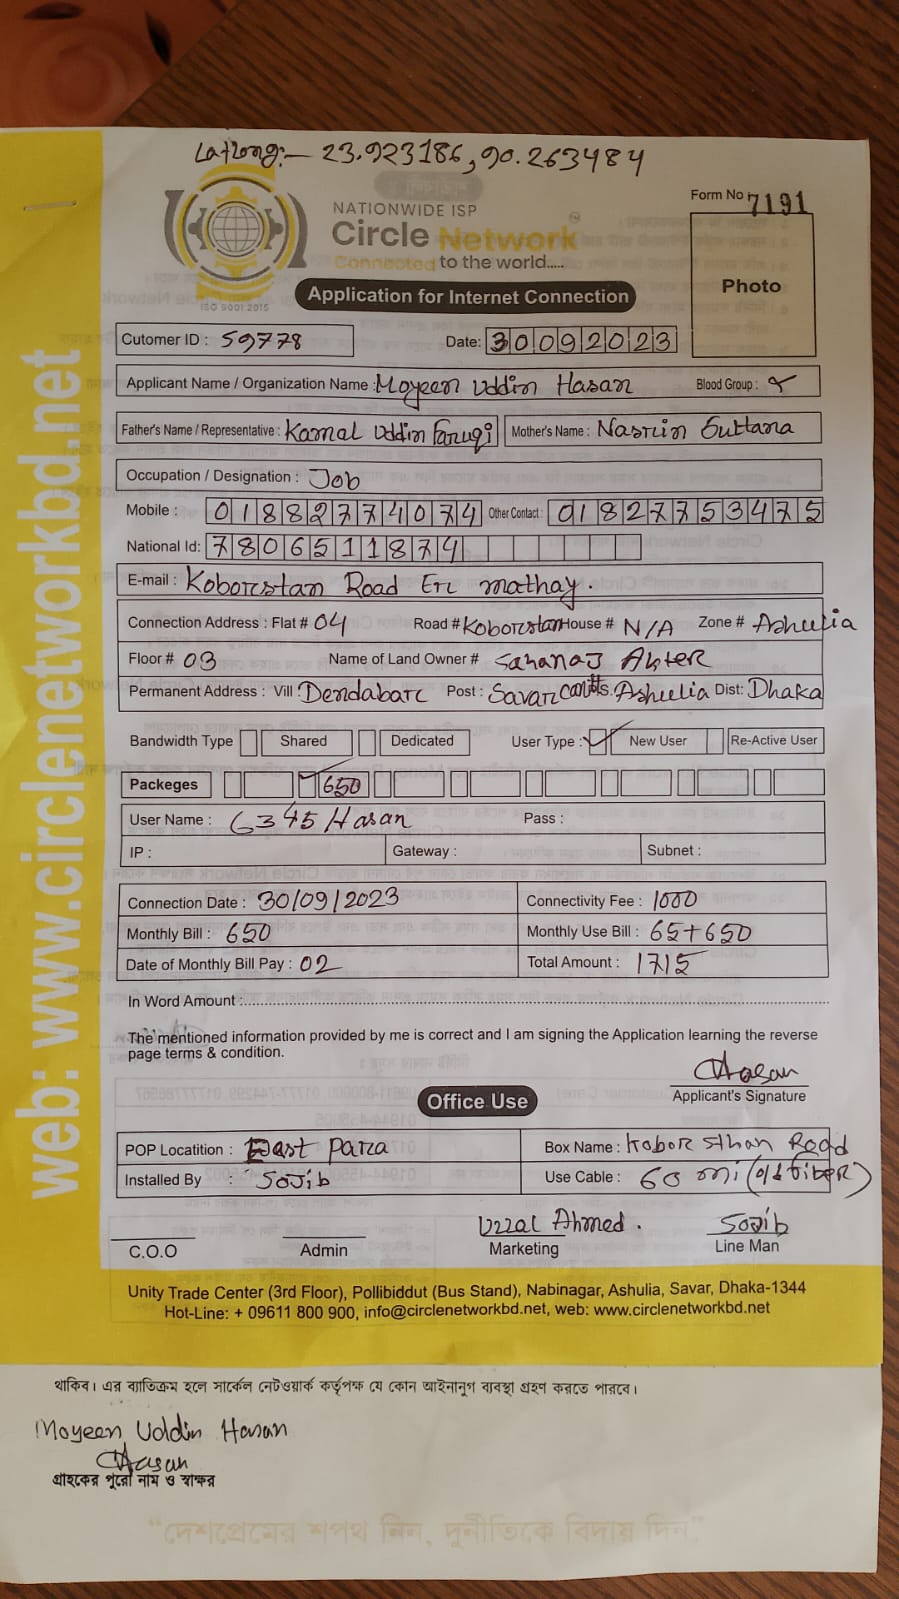 LatLong:- 23.923186, 90.263484
Form No 7191
NATIONWIDE ISP
Circle Network™
Connected to the world.....
ISO 9001:2015
Photo
Application for Internet Connection
Cutomer ID : 59778 Date: 30092023
Applicant Name / Organization Name : Moyeen Uddin Hasan Blood Group :
Father's Name / Representative : Kamal Uddin Faruqi Mother's Name : Nasrin Sultana
Occupation / Designation : Job
Mobile : 01882774074 Other Contact : 01827753475
National Id: 7806511874
E-mail : Koborstan Road Er mathay.
Connection Address : Flat # 04 Road # Koborstan House # N/A Zone # Ashulia
Floor # 03 Name of Land Owner # Sahanaj Akter
Permanent Address : Vill : Dendabar Post : Savar Cantt P.S. Ashulia Dist: Dhaka
Bandwidth Type Shared Dedicated User Type : New User Re-Active User
Packeges 650
User Name : 6345Hasan Pass :
IP : Gateway : Subnet :
Connection Date : 30/09/2023 Connectivity Fee : 1000
Monthly Bill : 650 Monthly Use Bill : 65+650
Date of Monthly Bill Pay : 02 Total Amount : 1715
In Word Amount :
The mentioned information provided by me is correct and I am signing the Application learning the reverse
page terms & condition.
Hasan
Applicant's Signature
Office Use
POP Locatition : East Para Box Name : Kabor sthan Road
Installed By : Sojib Use Cable : 60 mi (o/d fiber)
Uzzal Ahmed. Sojib
C.O.O Admin Marketing Line Man
web: www.circlenetworkbd.net
Unity Trade Center (3rd Floor), Pollibiddut (Bus Stand), Nabinagar, Ashulia, Savar, Dhaka-1344
Hot-Line: + 09611 800 900, info@circlenetworkbd.net, web: www.circlenetworkbd.net
থাকিব। এর ব্যতিক্রম হলে সার্কেল নেটওয়ার্ক কর্তৃপক্ষ যে কোন আইনানুগ ব্যবস্থা গ্রহণ করতে পারবে।
Moyeen Uddin Hasan
Hasan
গ্রাহকের পুরো নাম ও স্বাক্ষর
"দেশপ্রেমের শপথ নিন, দুর্নীতিকে বিদায় দিন"